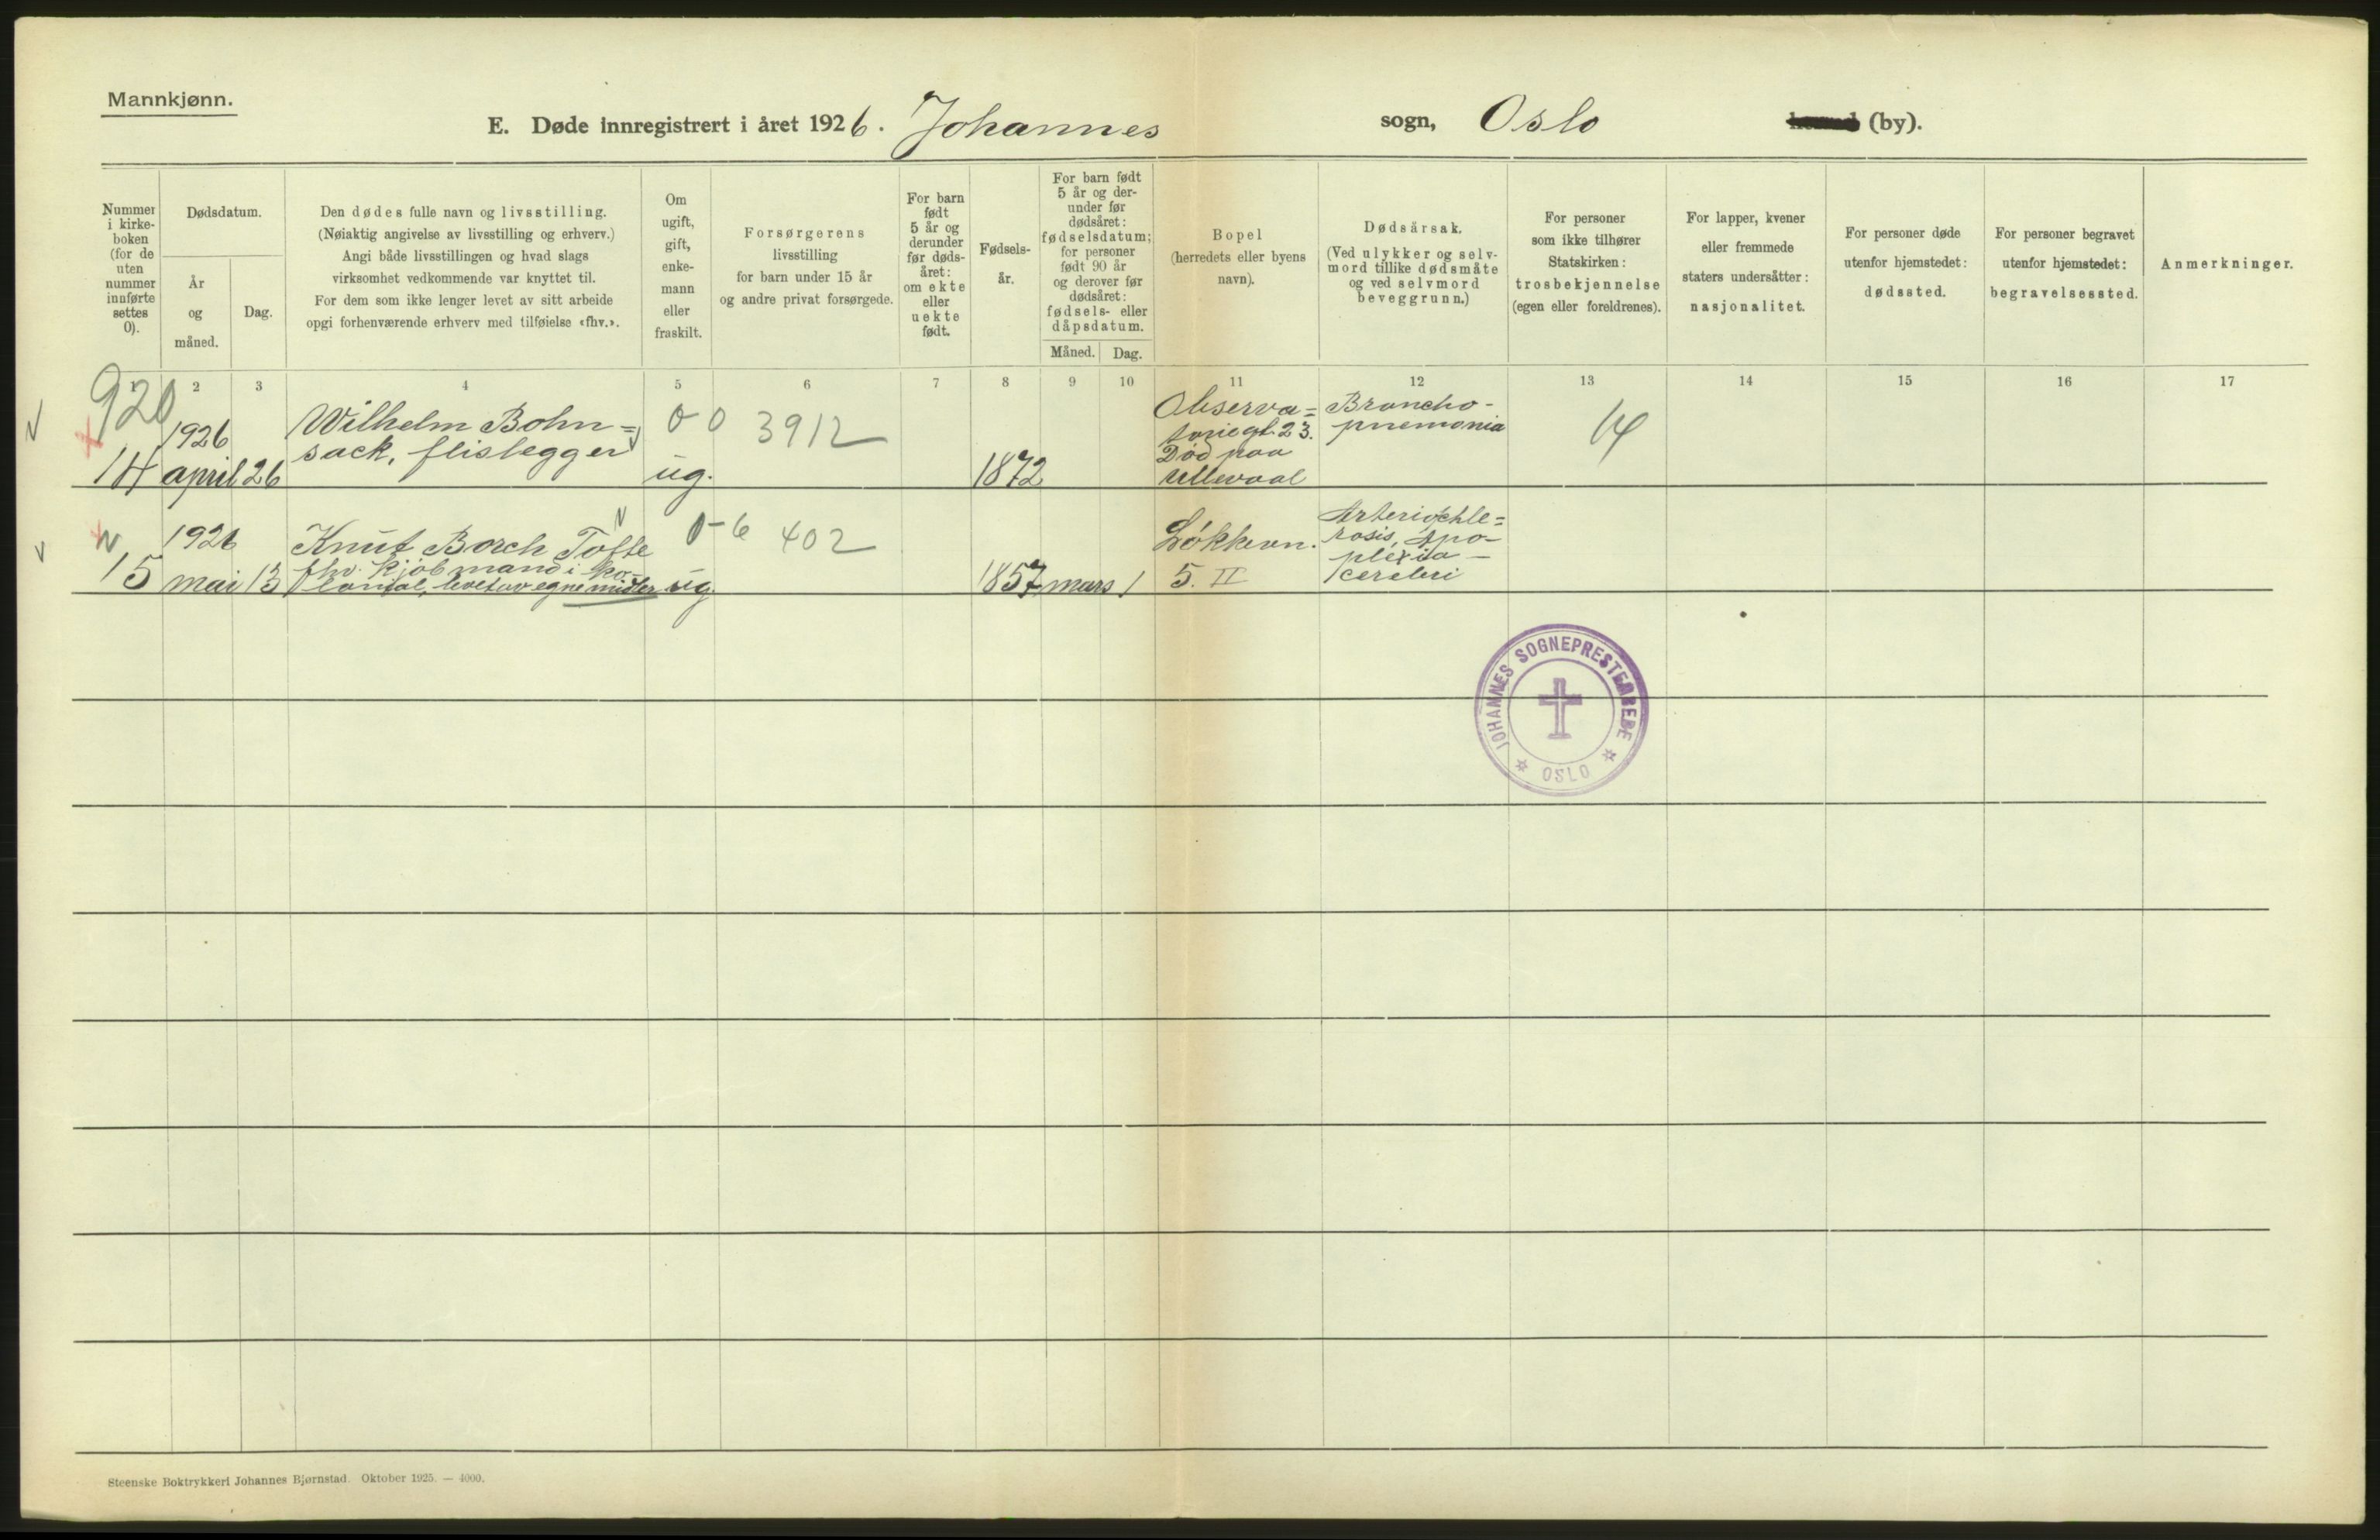 Mannkjønn.
E. Døde innregistrert i året 1926. Johannes sogn, Oslo (by).
Nummer
i kirke-
boken
(for de
uten
nummer
innførte
settes
0).
Dødsdatum.
År
og
måned.
Dag.
Den dødes fulle navn og livsstilling.
(Nøiaktig angivelse av livsstilling og erhverv.)
Angi både livsstillingen og hvad slags
virksomhet vedkommende var knyttet til.
For dem som ikke lenger levet av sitt arbeide
opgi forhenværende erhverv med tilføielse «fhv.».
Om
ugift,
gift,
enke-
mann
eller
fraskilt.
Forsørgerens
livsstilling
for barn under 15 år
og andre privat forsørgede.
For barn
født
5 år og
derunder
før døds-
året:
om ekte
eller
uekte
født.
Fødsels-
år.
For barn født
5 år og der-
under før
dødsåret:
fødselsdatum;
for personer
født 90 år
og derover før
dødsåret:
fødsels- eller
dåpsdatum.
Måned. Dag.
Bopel
(herredets eller byens
navn).
Dødsårsak.
(Ved ulykker og selv-
mord tillike dødsmåte
og ved selvmord
beveggrunn.)
For personer
som ikke tilhører
Statskirken:
trosbekjennelse
(egen eller foreldrenes).
For lapper, kvener
eller fremmede
staters undersåtter:
nasjonalitet.
For personer døde
utenfor hjemstedet:
dødssted.
For personer begravet
utenfor hjemstedet:
begravelsessted.
Anmerkninger.
1 2 3 4 5 6 7 8 9 10 11 12 13 14 15 16 17
920
14
1926
april 26
Wilhelm Bohn=
sack, flislegger
0 0
ug.
3912
1872
Observa=
toriegt. 23.
Död paa
Ullevaal
Broncho-
pnemonia
14
15
1926
mai 13
Knut Borch Tofte
fhv. kjöbmand i Ko-
levet av egne midler
ug.
0-6 402
1857 mars 1
Lökkevn.
5. II
Arterioschle=
rosis, Apo-
plexia
cerebri
JOHANNES SOGNEPRESTEMBEDE
OSLO
Steenske Boktrykkeri Johannes Bjørnstad. Oktober 1925. — 4000.